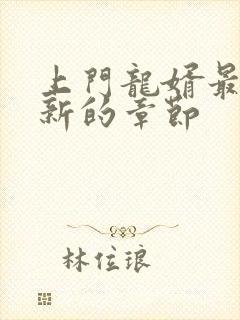 上門龍婿最
新的章節
林位琅